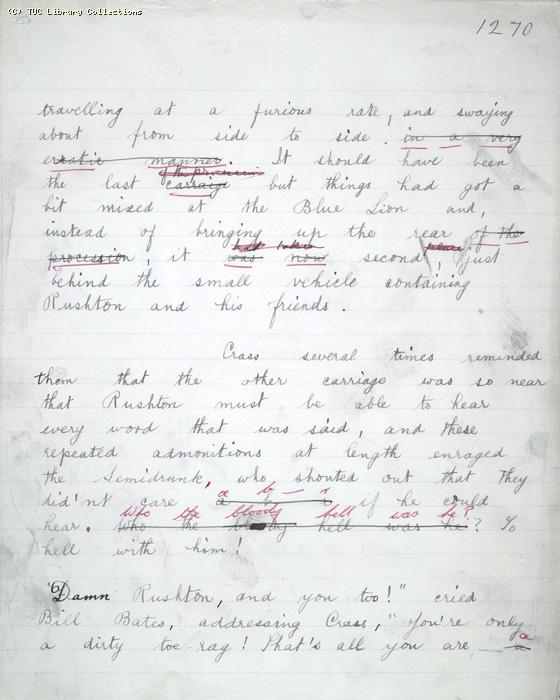 (C) TUC Library Collections
1270
travelling at a furious rate, and swaying
about from side to side. in a very
erratic manner. It should have been
of the procession
the last carraige but things had got a
bit mixed at the Blue Lion and,
instead of bringing up the rear of the
had taken place
procession, it was now second, just
behind the small vehicle containing
Rushton and his friends.
Crass several times reminded
them that the other carriage was so near
that Rushton must be able to hear
every word that was said, and these
repeated admonitions at length enraged
the Semidrunk, who shouted out that they
a b — r
did'nt care a b r if he could
Who the bloody hell was he?
hear. Who the bloody hell was he? To
hell with him!
"Damn Rushton, and you too!" cried
Bill Bates, addressing Crass, "You're only
a dirty toe-rag! That's all you are — a
a